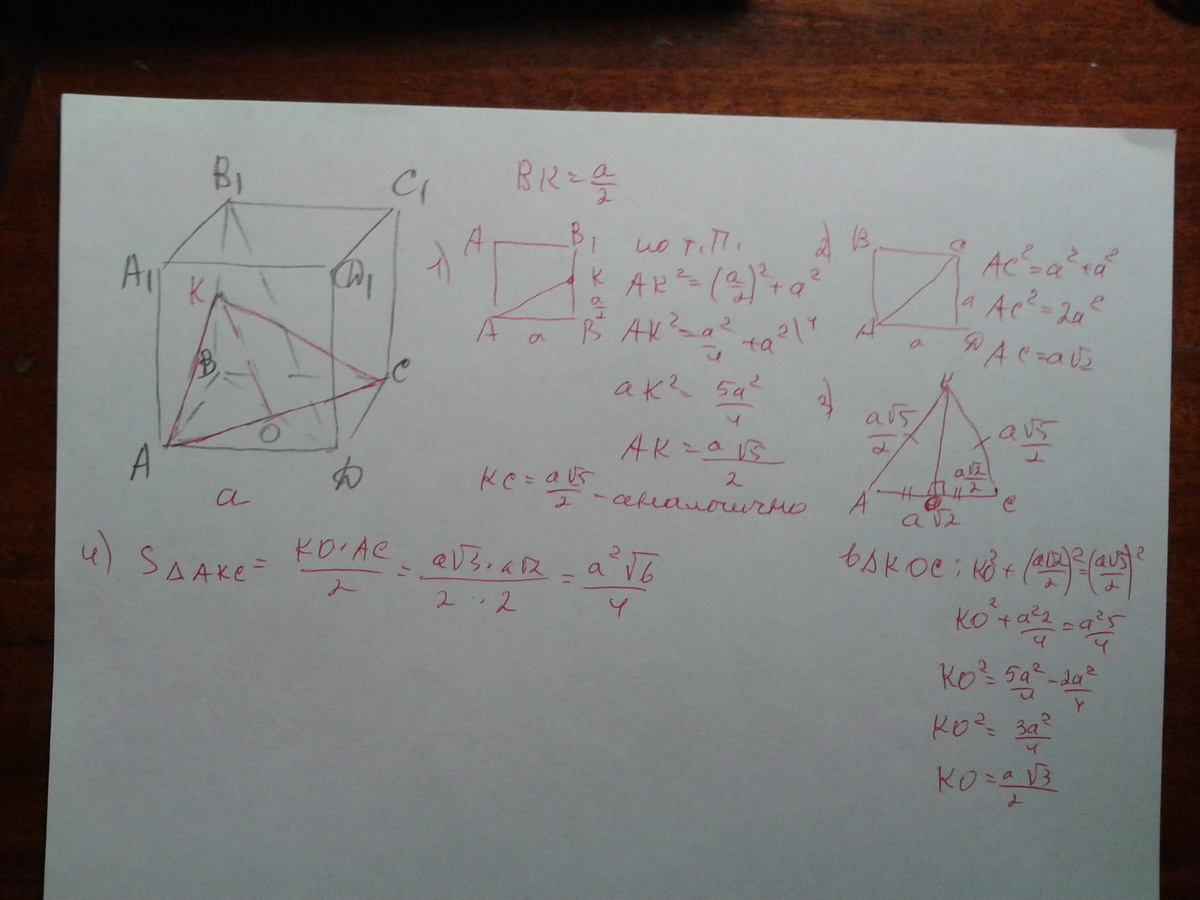 B₁
C₁
A₁
D₁
K
B
C
O
A
D
a
BK = a/2
1)
A B₁
K
a/2
A a B
по т.П.
AK² = (a/2)² + a²
AK² = a²/4 + a² \4
aK² = 5a²/4
AK = a√5/2
KC = a√5/2 - аналогично
2)
B C
a
A a D
AC² = a² + a²
AC² = 2a²
AC = a√2
K
a√5/2 a√5/2
a√2/2
A O C
a√2
в ΔKOC: KO² + (a√2/2)² = (a√5/2)²
KO² + a²2/4 = a²5/4
KO² = 5a²/4 - 2a²/4
KO² = 3a²/4
KO = a√3/2
4) S ΔAKC = KO·AC/2 = a√3·a√2/2·2 = a²√6/4